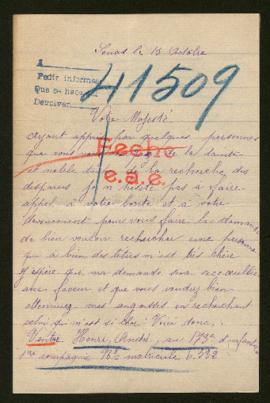 le 15 Octobre
A
Pedir informes
Que se hace
Devolver
41509
Votre Majesté
Ayant appris par quelques personnes
que vous
Fecho
et noble
la recherche, des
e.a.e.
disparus je n'hésite pas à faire
appel à votre bonté et à votre
dévouement pour vous faire la demande
de bien vouloir rechercher une personne
qui à bien des titres m'est très chère
J'espère que ma demande sera accueillie
avec faveur et que vous voudrez bien
mes angoisses en recherchant
celui qui m'est si cher. Voici donc.
Ventre Henri, André, au 173e d'infanterie
1re compagnie matricule